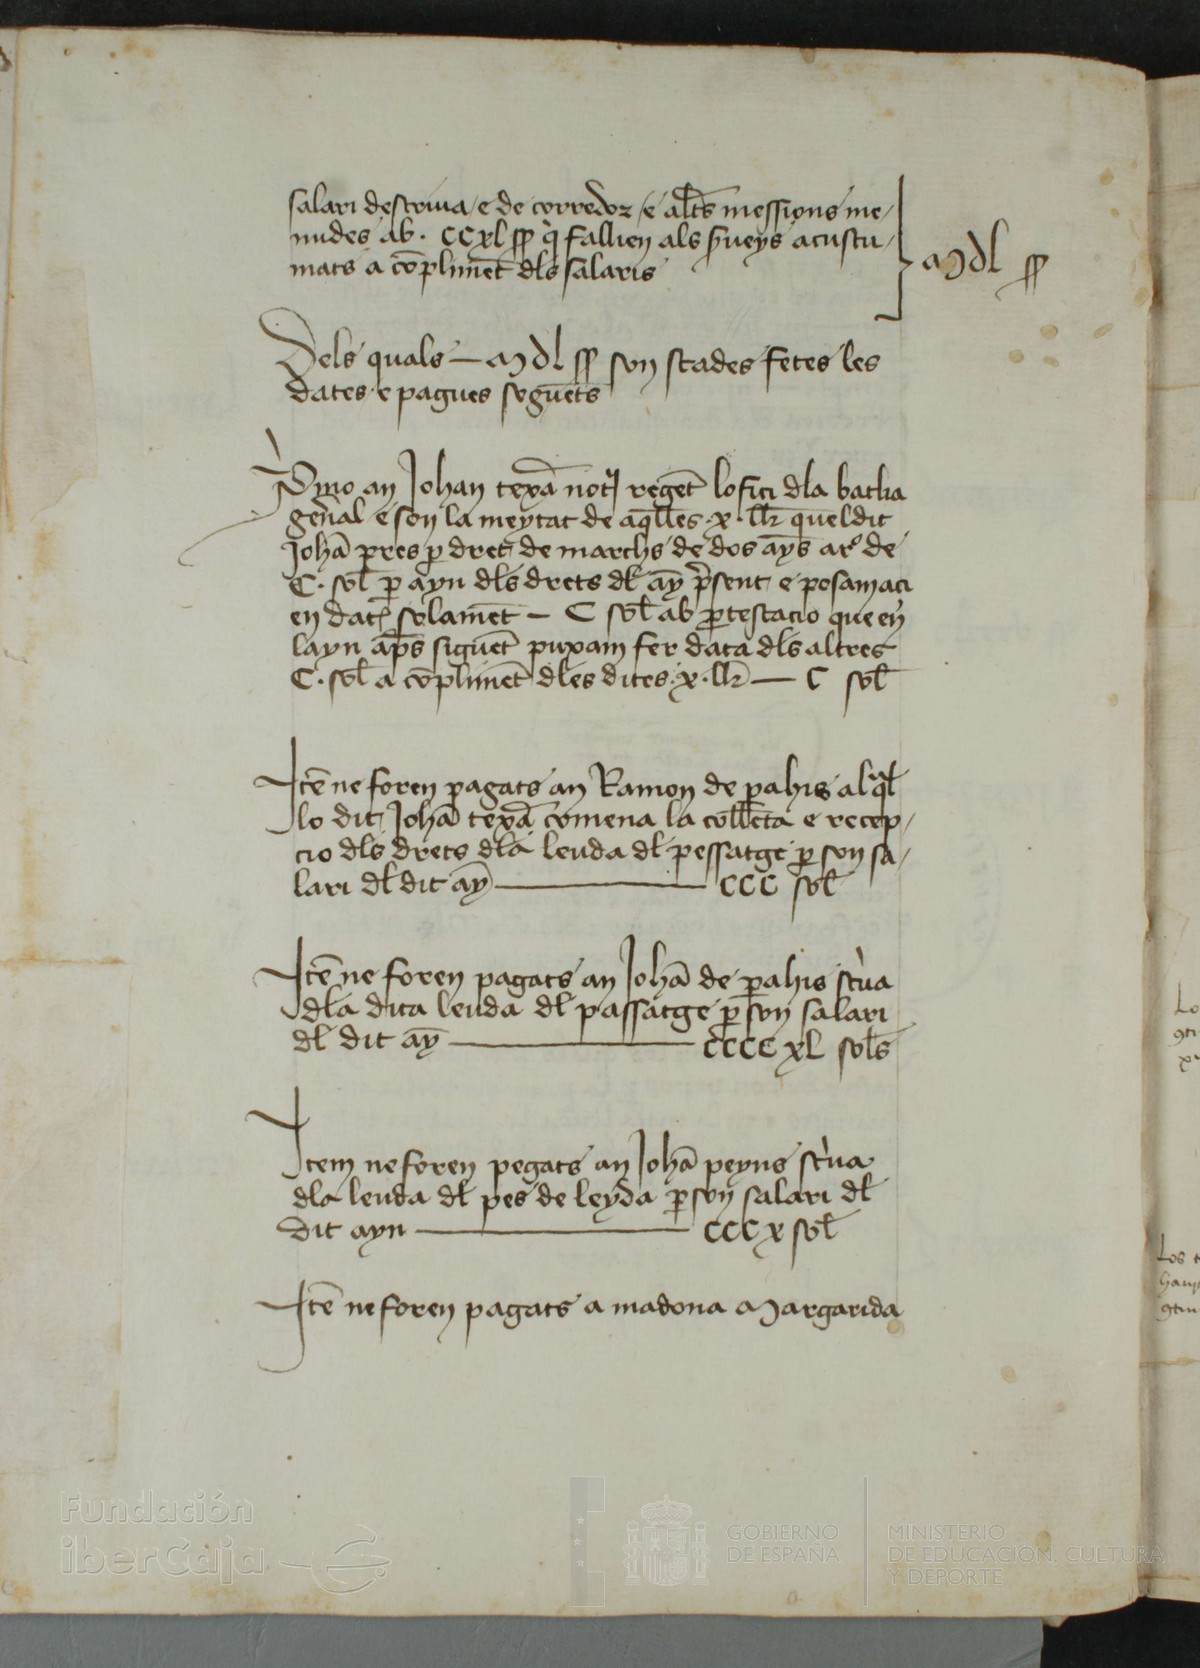 salari descriua / e de corredor / e alt̄s messions me/
nudes ab · CCxl ss q̄ fallien als s̄ueys acustu/
mats a cōplimēt dls salaris
Mdl ss
Dels quals — Mdl ss son stades fetes les
dates · e pagues seguēts
P̄mo an Johan texā not̄ regēt lofici dla batlia
gen̄al e son la meytat de aq̄lles · x · llr̄ queldit
Johā p̄res p̄ dret de marchs de dos āys ar° de
C · sol̄ p̄ ayn dls drets dl āy p̄sent e posam aci
en dat solamēt — C sol̄ ab p̄testacio que en
layn ap̄s siguēt puxam fer data dls altres
C · sol̄ a cōplimēt dles dites · x · llr̄ — C sol̄
Itē ne foren pagats an Ramon de p̄ahis al q̄l
lo dit Johā texā comena la coll̄eta e recep/
cio dls drets dla leuda dl pessatge p̄ son sa/
lari dl dit āy — CCC sol̄
Itē ne foren pagats an Johā de p̄ahis sc̄ua
dla dita leuda dl passatge p̄ son salari
dl dit āy — CCCC xl sol̄s
Item ne foren pegats an Johā peyns sc̄ua
dla leuda dl pes de leyda p̄ son salari dl
dit ayn — CCC x sol̄
Itē ne foren pagats a madona Margarida
Fundación
iberCaja
GOBIERNO
DE ESPAÑA
MINISTERIO
DE EDUCACIÓN, CULTURA
Y DEPORTE